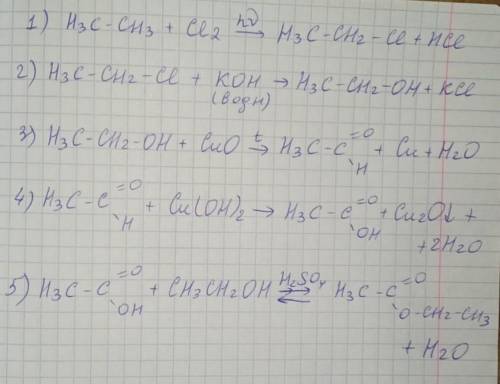 1) H₃C-CH₃ + Cl₂ →(hν) H₃C-CH₂-Cl + HCl
2) H₃C-CH₂-Cl + KOH (водн) → H₃C-CH₂-OH + KCl
3) H₃C-CH₂-OH + CuO →(t) H₃C-C(=O)H + Cu + H₂O
4) H₃C-C(=O)H + Cu(OH)₂ → H₃C-C(=O)OH + Cu₂O↓ +
+ 2H₂O
5) H₃C-C(=O)OH + CH₃CH₂OH ⇄(H₂SO₄) H₃C-C(=O)O-CH₂-CH₃
+ H₂O